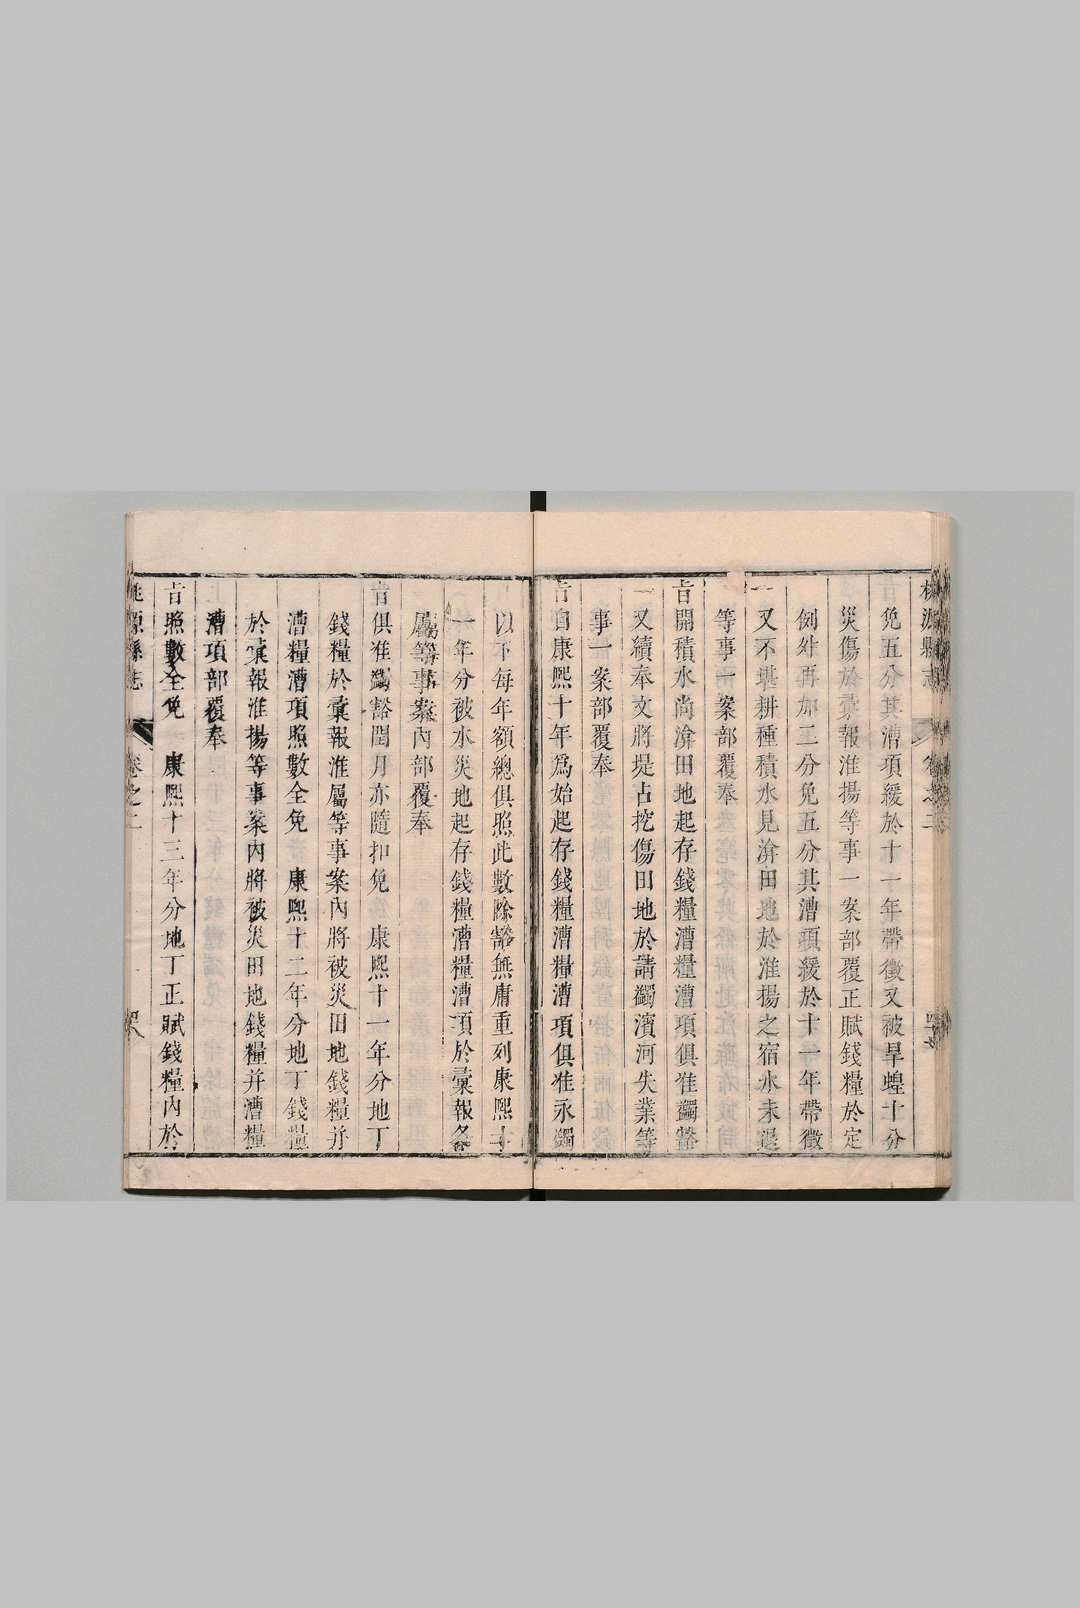 桃源縣志 卷之二
旨免五分其漕項緩於十一年帶徵又被旱蝗十分
災傷於彙報淮揚等事一案部覆正賦錢糧於定
例外再加二分免五分其漕項緩於十一年帶徵
又不堪耕種積水見渰田地於淮揚之宿水未退
等事一案部覆奉
旨開積水尚渰田地起存錢糧漕糧漕項俱准蠲豁
又續奉文將堤占挖傷田地於請蠲濱河失業等
事一案部覆奉
旨自康熙十年為始起存錢糧漕糧漕項俱准永蠲
以下每年額總俱照此數除豁無庸重列康熙十
一年分被水災地起存錢糧漕糧漕項於彙報各
屬等事案內部覆奉
旨俱准蠲豁閏月亦隨扣免 康熙十一年分地丁
錢糧於彙報淮屬等事案內將被災田地錢糧并
漕糧漕項照數全免 康熙十二年分地丁錢糧
於彙報淮揚等事案內將被災田地錢糧并漕糧
漕項部覆奉
旨照數全免 康熙十三年分地丁正賦錢糧內於
桃源縣志 卷之二 四八